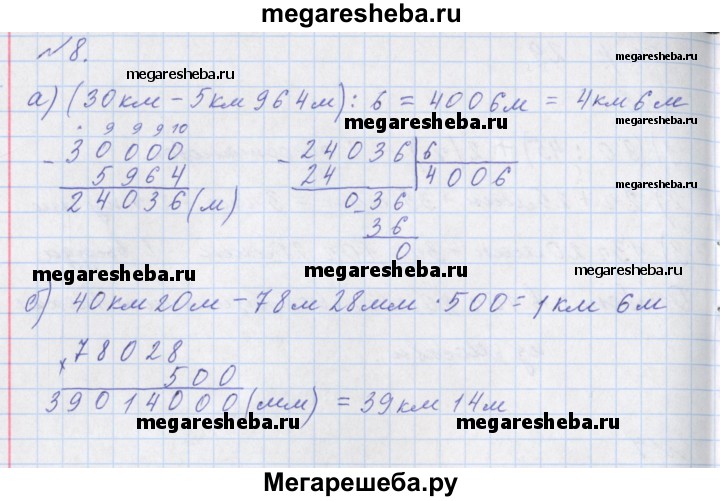 megaresheba.ru
№8.
megaresheba.ru
а) (30км - 5км 964м) : 6 = 4006м = 4км 6м
megaresheba.ru
9 9 9 10
- 30000
5964
24036(м)
- 24036 | 6
24 | 4006
036
36
0
megaresheba.ru
megaresheba.ru
megaresheba.ru
б) 40км 20м - 78м 28мм · 500 = 1км 6м
× 78028
500
39014000(мм) = 39км 14м
megaresheba.ru
megaresheba.ru
Мегарешеба.ру